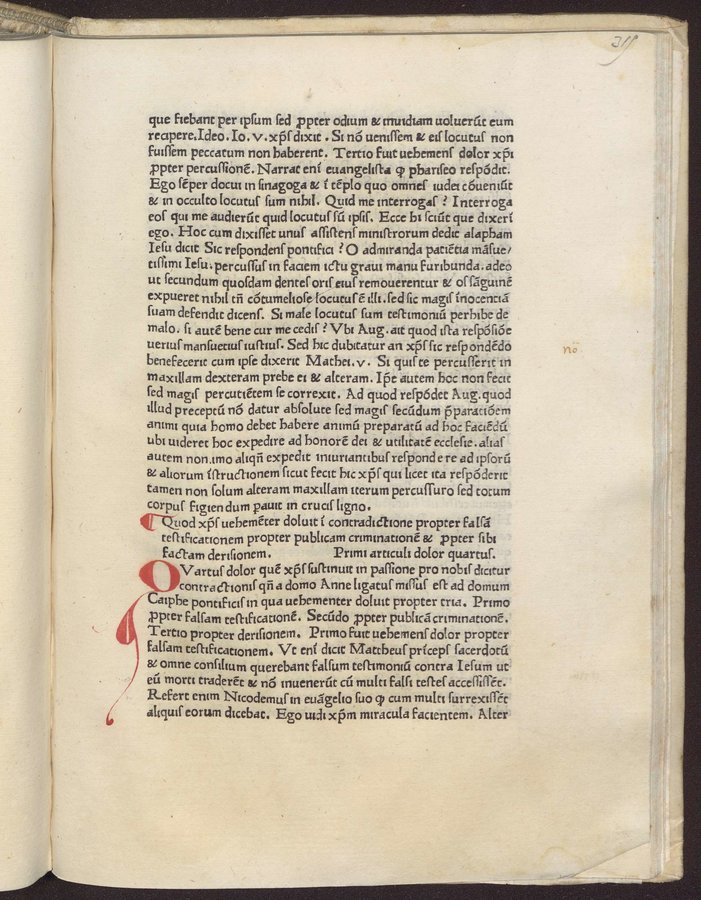 311
que fiebant per ipsum sed ꝓpter odium & inuidiam uoluerūt eum
recipere. Ideo. Io. v. xp̄s dixit . Si nō uenissem & eis locutus non
fuissem peccatum non haberent. Tertio fuit uehemens dolor xp̄i
ꝓpter percussionē. Narrat eni᷑ euangelista ꝙ phariseo respōdit.
Ego sēper docui in sinagoga & ī tēplo quo omnes iudei cōueniūt
& in occulto locutus sum nihil. Quid me interrogas ? Interroga
eos qui me audierūt quid locutus sū ipsis. Ecce hi sciūt que dixerī
ego. Hoc cum dixisset unus assistens ministrorum dedit alapham
Iesu dicit Sic respondens pontifici ? O admiranda patiētia māsue/
tissimi Iesu. percussus in faciem ictu graui manu furibunda. adeo
ut secundum quosdam dentes oris eius remouerentur & os sāguinē
expueret nihil tn̄ cōtumeliose locutus ē illi. sed sic magis īnocentiā
suam defendit dicens. Si male locutus sum testimoniū perhibe de
malo. si autē bene cur me cedis ? Vbi Aug. ait quod ista respōsiōe
uerius mansuetius iustius. Sed hic dubitatur an xp̄s sic respondēdo
benefecerit cum ipse dixerit Mathei. v. Si quis te percusserit in
maxillam dexteram prebe ei & alteram. Ip̄e autem hoc non fecit
sed magis percutiētem se correxit. Ad quod respōdet Aug. quod
illud preceptū nō datur absolute sed magis secūdum p̄paratiōem
animi quia homo debet habere animū preparatū ad hoc faciēdū
ubi uideret hoc expedire ad honorē dei & utilitatē ecclesie. alias
autem non. imo aliqn̄ expedit iniuriantibus respondere ad ipsorū
& aliorum īstructionem sicut fecit hic xp̄s qui licet ita respōderit
tamen non solum alteram maxillam iterum percussuro sed totum
corpus figiendum pauit in crucis ligno.
nō
Quod xp̄s uehemēter doluit ī contradictione propter falsā
testificationem propter publicam criminationē & ꝓpter sibi
factam derisionem. Primi articuli dolor quartus.
QVartus dolor quē xp̄s sustinuit in passione pro nobis dicitur
contractionis qn̄ a domo Anne ligatus missus est ad domum
Caiphe pontificis in qua uehementer doluit propter tria. Primo
ꝓpter falsam testificationē. Secūdo ꝓpter publicā criminationē.
Tertio propter derisionem. Primo fuit uehemens dolor propter
falsam testificationem. Vt enī dicit Mattheus prīceps sacerdotū
& omne consilium querebant falsum testimoniū contra Iesum ut
eū morti traderēt & nō inuenerūt cū multi falsi testes accessissēt.
Refert enim Nicodemus in euāgelio suo ꝙ cum multi surrexissēt
aliquis eorum dicebat. Ego uidi xp̄m miracula facientem. Alter